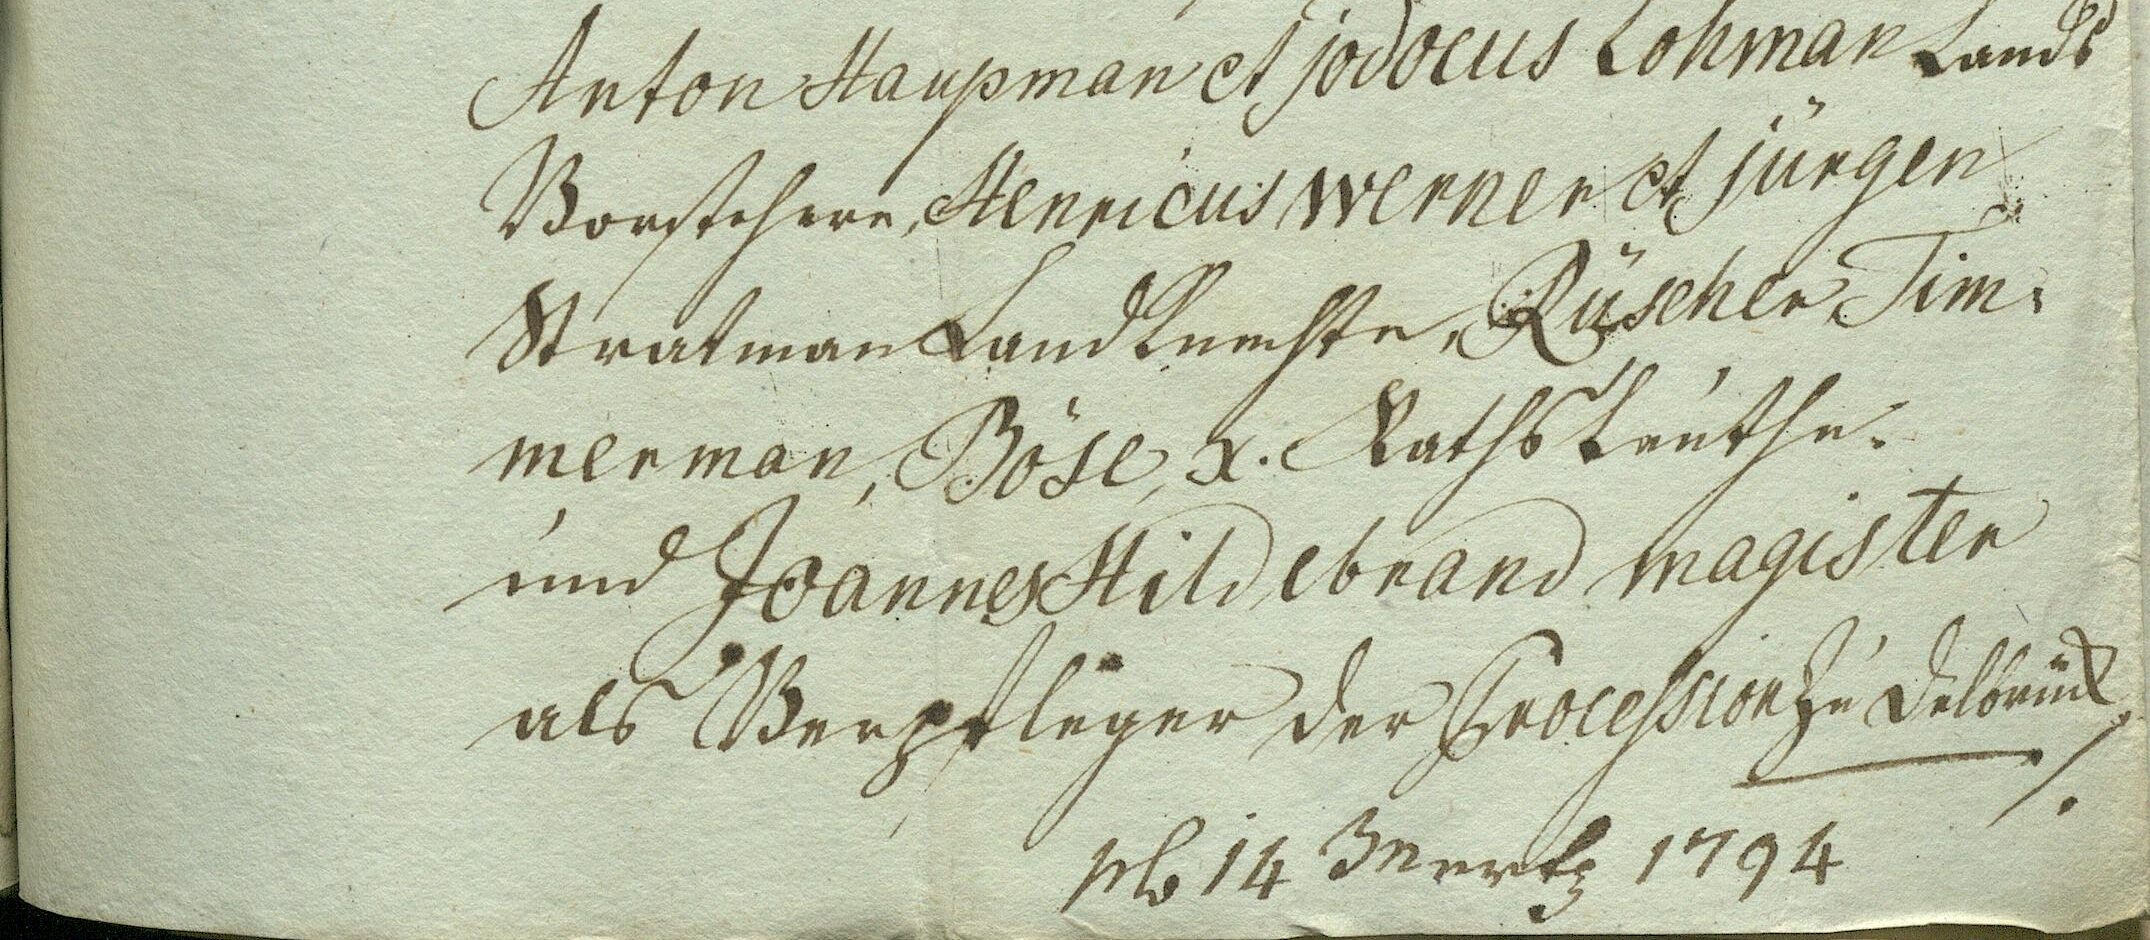 Anton Haupman et jodocus Lohman Lands
Vorstehere, Henricus Werner et jürgen
Stratman Landknechte, Rüscher, Tim:
merman, Böse, x. Raths Leuthe.
und Joannes Hildebrand magister
als Verpfleger der Procession zu Delbrück
14 Mertz 1794